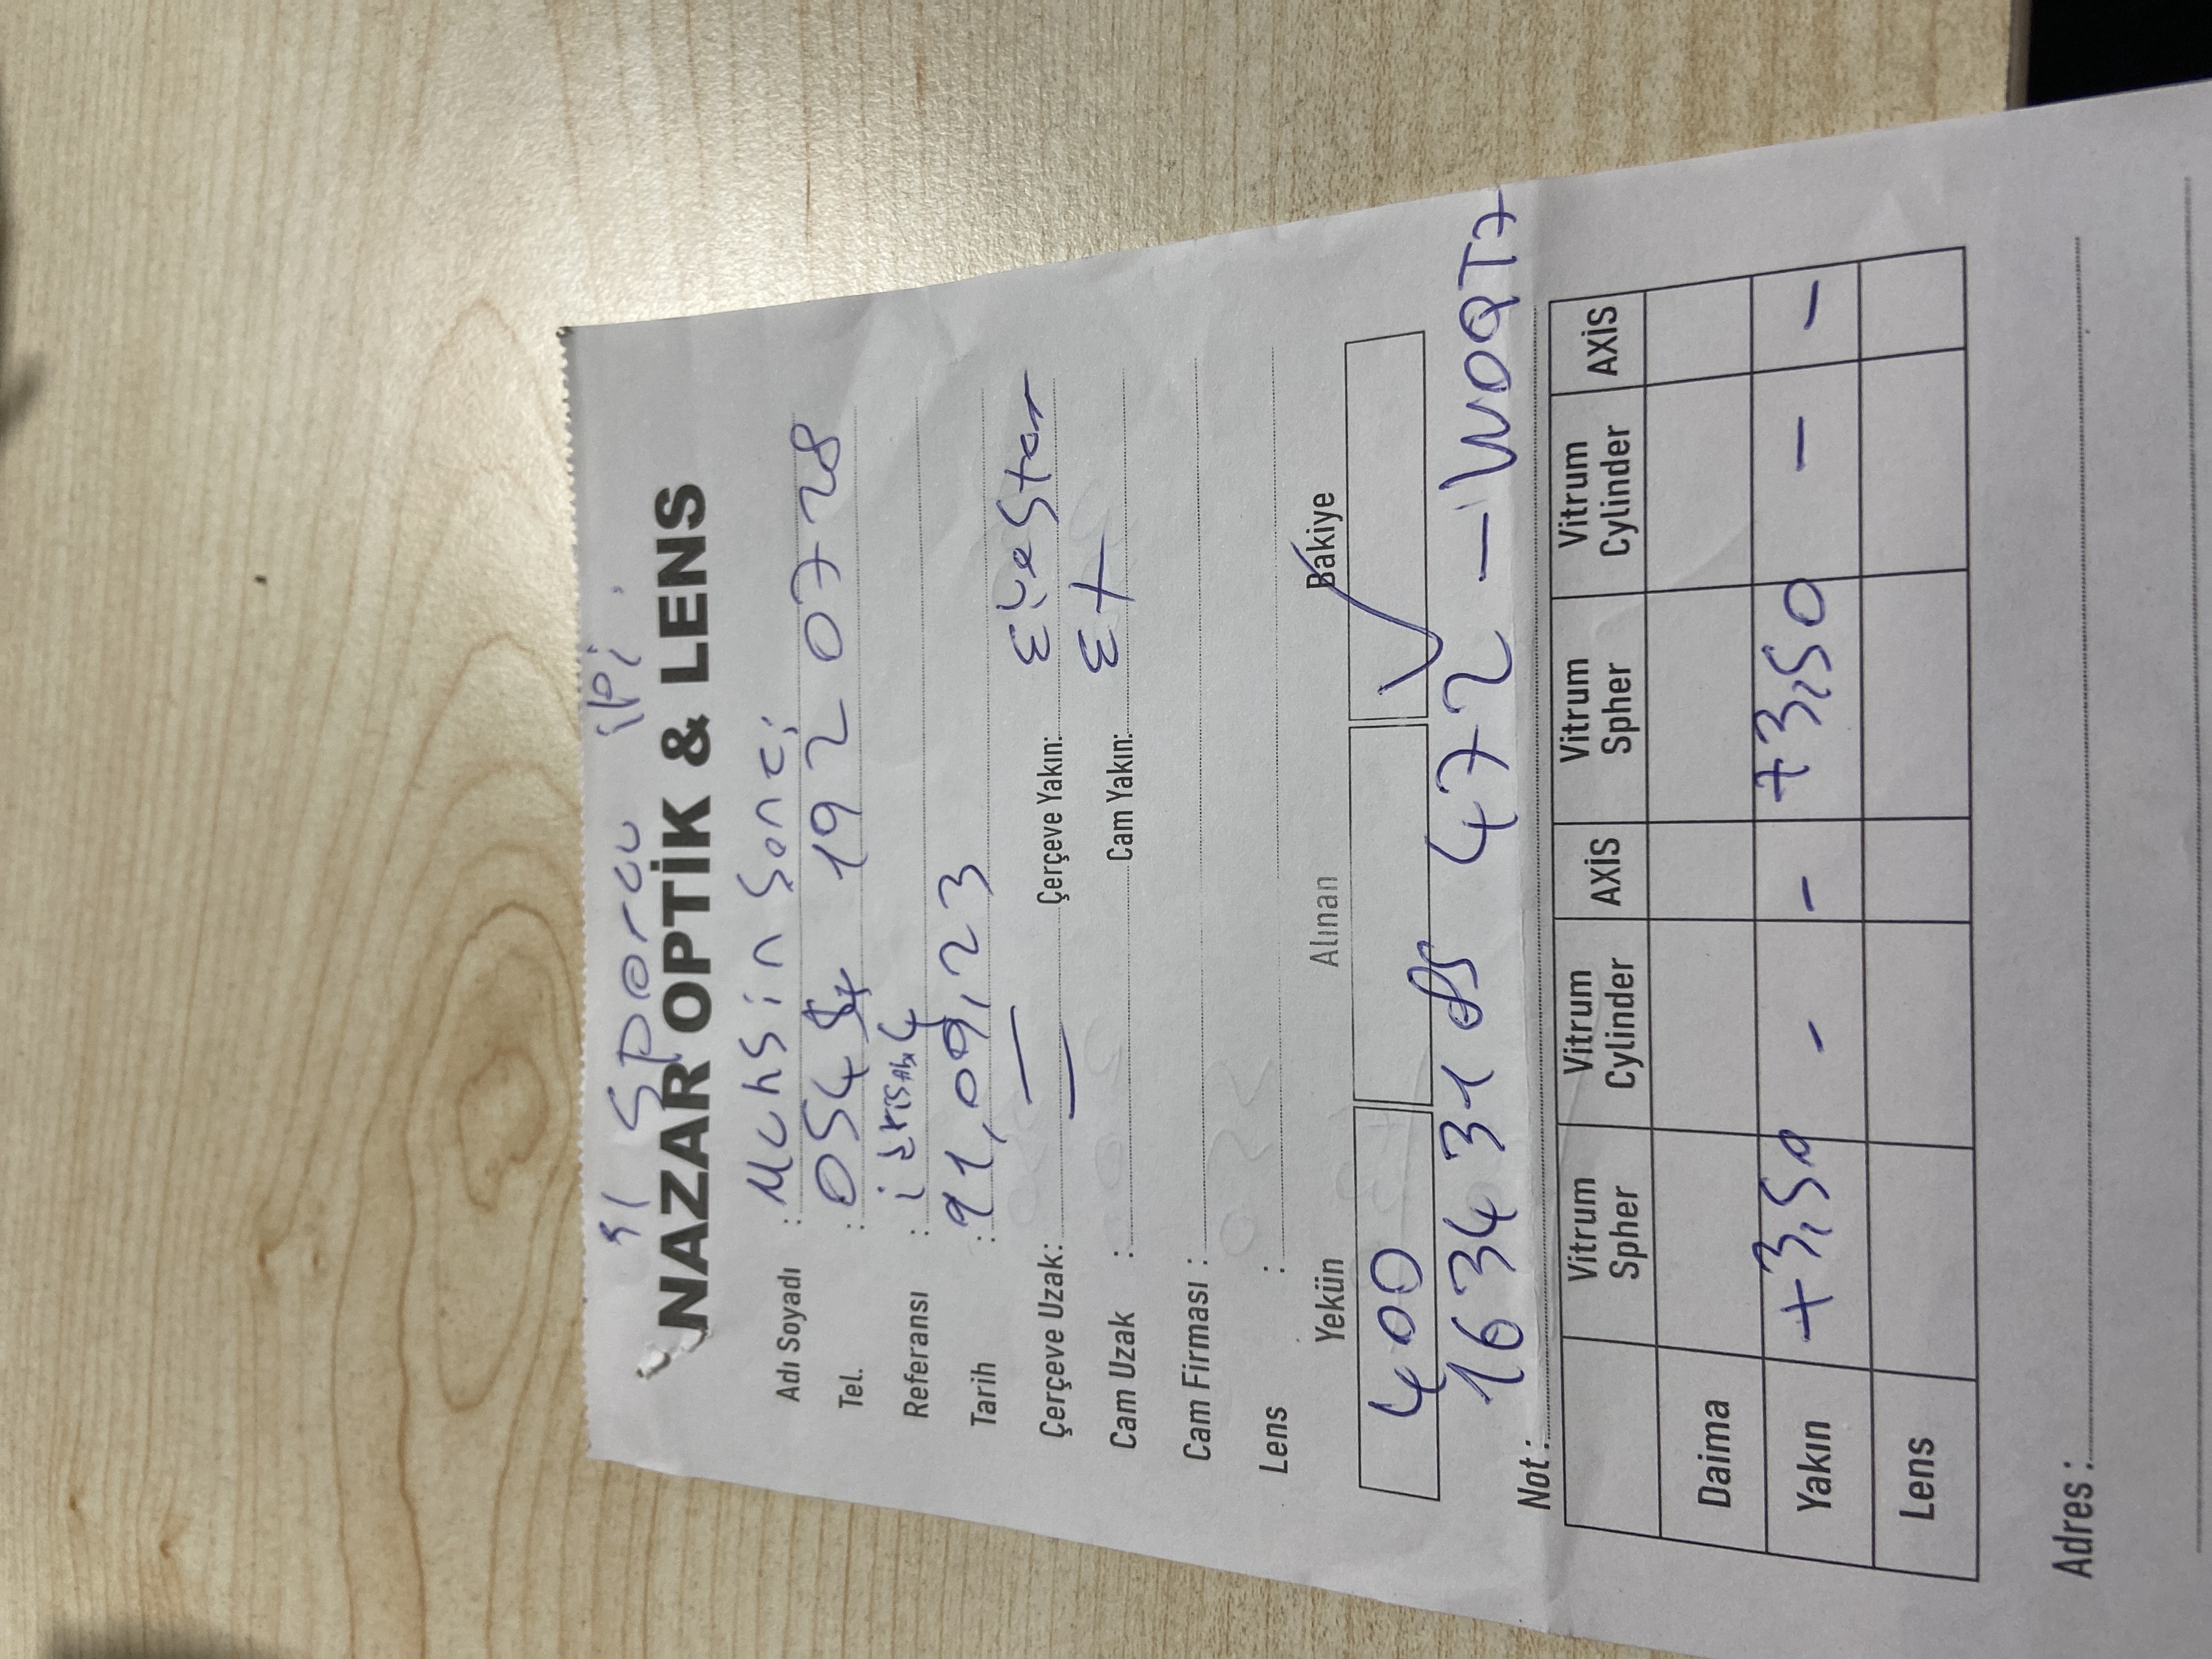 Sporcu ipi.
NAZAR OPTİK & LENS
Adı Soyadı : Muhsin
Tel. : 054 192 0728
Referansı :
Tarih : 11,09,23
Çerçeve Uzak: — Çerçeve Yakın:
Cam Uzak : — Cam Yakın:
Cam Firması :
Lens :
Yekün Alınan Bakiye
400 ✓
163431 85 472 – WOQT7
Not :
Vitrum Spher Vitrum Cylinder AXİS Vitrum Spher Vitrum Cylinder AXİS
Daima
Yakın +3,50 - - +3,50 - -
Lens
Adres :